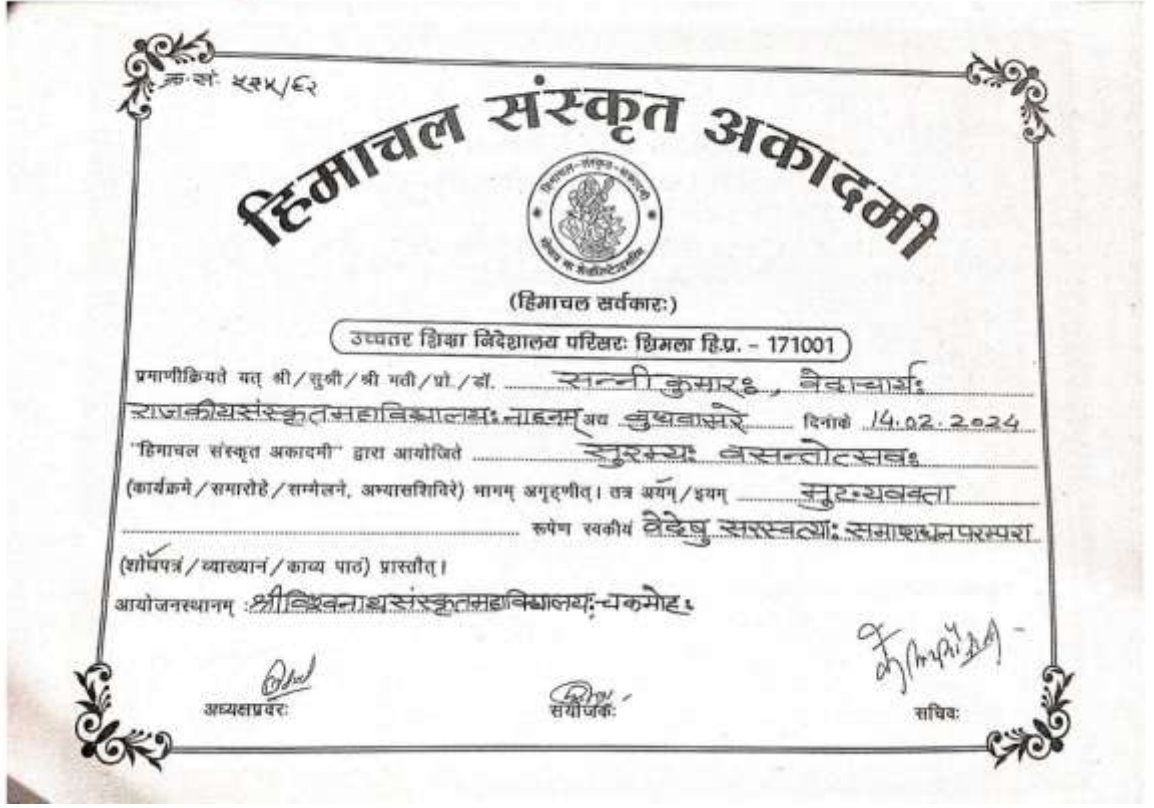 क्र.सं. ५३५/६२
हिमाचल संस्कृत अकादमी
हिमाचल-संस्कृत-अकादमी
(हिमाचल सर्वकारः)
उच्चतर शिक्षा निदेशालय परिसरः शिमला हि.प्र. - 171001
प्रमाणीक्रियते यत् श्री/सुश्री/श्री मती/प्रो./डॉ. सन्नी कुमारः, वेदाचार्यः
राजकीयसंस्कृतमहाविद्यालयः नाहनम् अद्य बुधवासरे दिनांके 14.02.2024
"हिमाचल संस्कृत अकादमी" द्वारा आयोजिते सुरम्यः वसन्तोत्सवः
(कार्यक्रमे/समारोहे/सम्मेलने, अभ्यासशिविरे) भागम् अगृह्णीत्। तत्र अयम्/इयम् मुख्यवक्ता
रूपेण स्वकीयं वेदेषु सरस्वत्याः समाराधनपरम्परा
(शोधपत्रं/व्याख्यानं/काव्य पाठ) प्रास्तौत्।
आयोजनस्थानम् : श्रीविश्वनाथसंस्कृतमहाविद्यालयः चकमोहः
अध्यक्षप्रवरः संयोजकः सचिवः